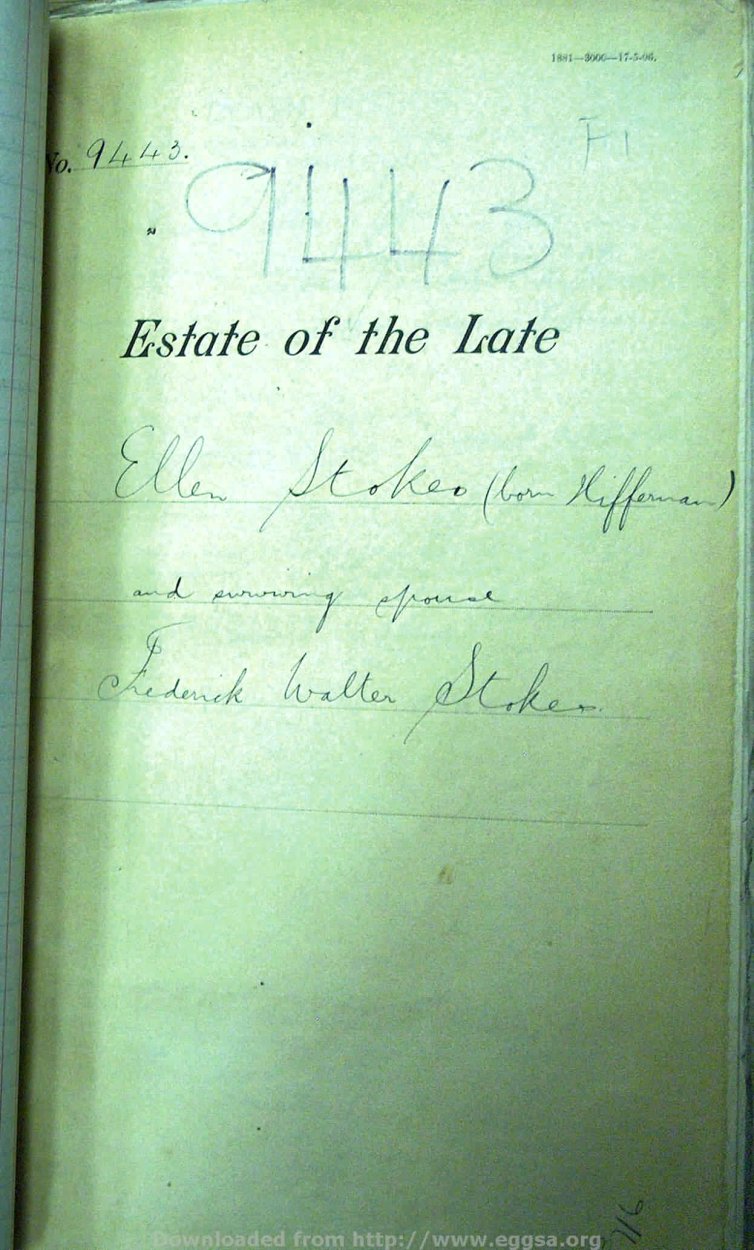 1881—3000—17-5-06.
No. 9443.
9443
Estate of the Late
Ellen Stokes (born Hiffernan)
and surviving spouse
Frederick Walter Stokes.
Downloaded from http://www.eggsa.org